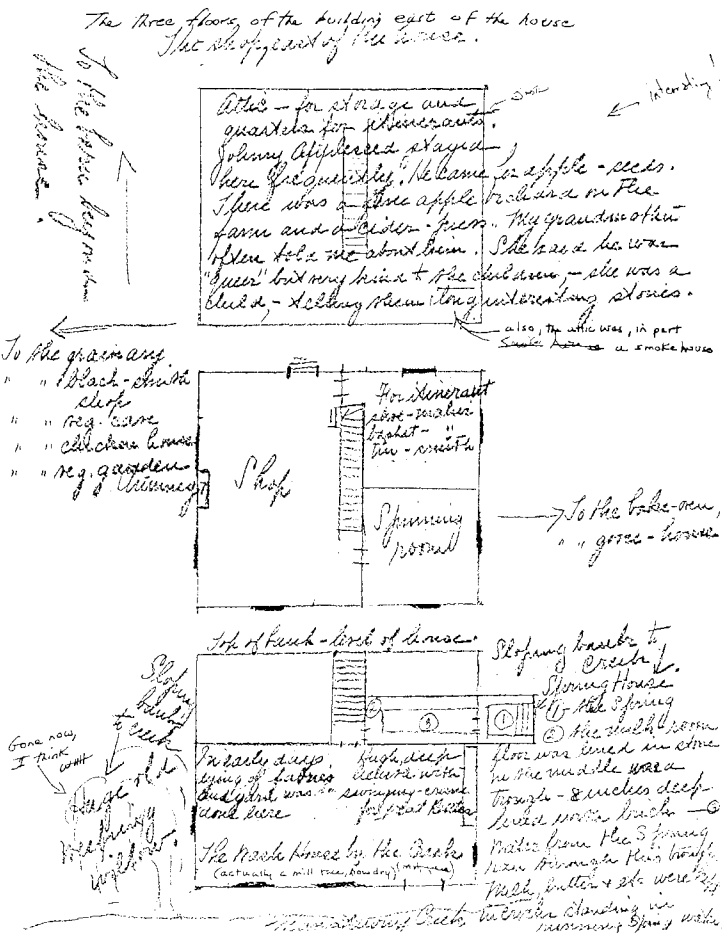 The three floors of the building east of the house
The shop, east of the house.
To the
the house.
interesting!
Attic – for storage and
quarters for itinerants.
Johnny Appleseed stayed
here frequently. He came for apple-seeds.
There was a fine apple orchard on the
farm and a cider-press. My grandmother
often told me about him. She said he was
"queer" but very kind to the children, – she was a
child, – telling them long interesting stories.
also, the attic was, in part
a smoke house
To the grainary
" " black-smith
shop
" " veg. cave
" " chicken house
" " veg. garden
Chimney
Shop
For itinerant
shoe-maker
basket- "
tin-smith
Spinning
room
To the bake-oven,
" " goose-house
Top of bank – level of house.
Sloping bank to
Creek
Spring House
1 – the Spring
2 the milk-room
floor was lined in stone
in the middle was a
trough – 8 inches deep
lined with brick – 3
Water from the Spring
ran through this trough
Milk, butter & etc were
in crocks standing in
running Spring water
1
2
3
Sloping
bank
to creek
Gone now,
I think
Huge old
weeping
willow.
In early days
dying of fabrics
and yarn was
done here
High, deep
with
swinging-crane
for great kettles
The Wash House by the Creek
(actually a mill race,
Creek